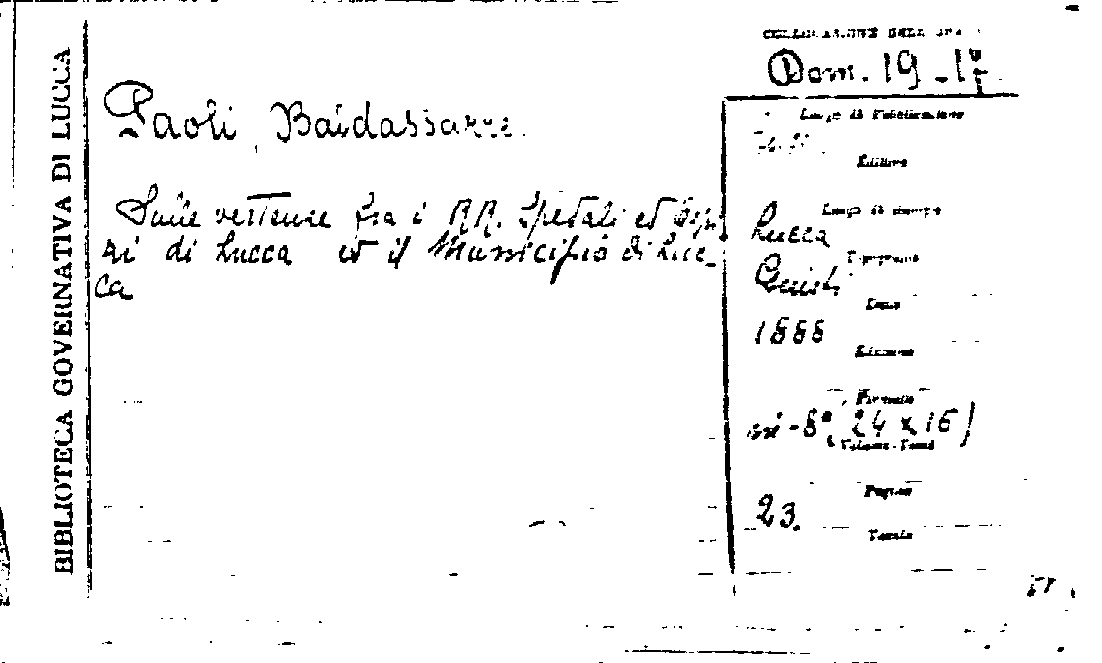 BIBLIOTECA GOVERNATIVA DI LUCCA
COLLOCAZIONE DELL'
Dom. 19-17
Paoli Baldassarre.
Sulle vertenze fra i RR. Spedali ed
zi di Lucca ed il Municipio di Luc-
ca
Luogo di Pubblicazione
Editore
Luogo di stampa
Lucca
Tipografia
Giusti
Data
1888
Edizione
Formato
in-8° (24 x 16)
Volume-Tomi
Pagine
23.
Tavole